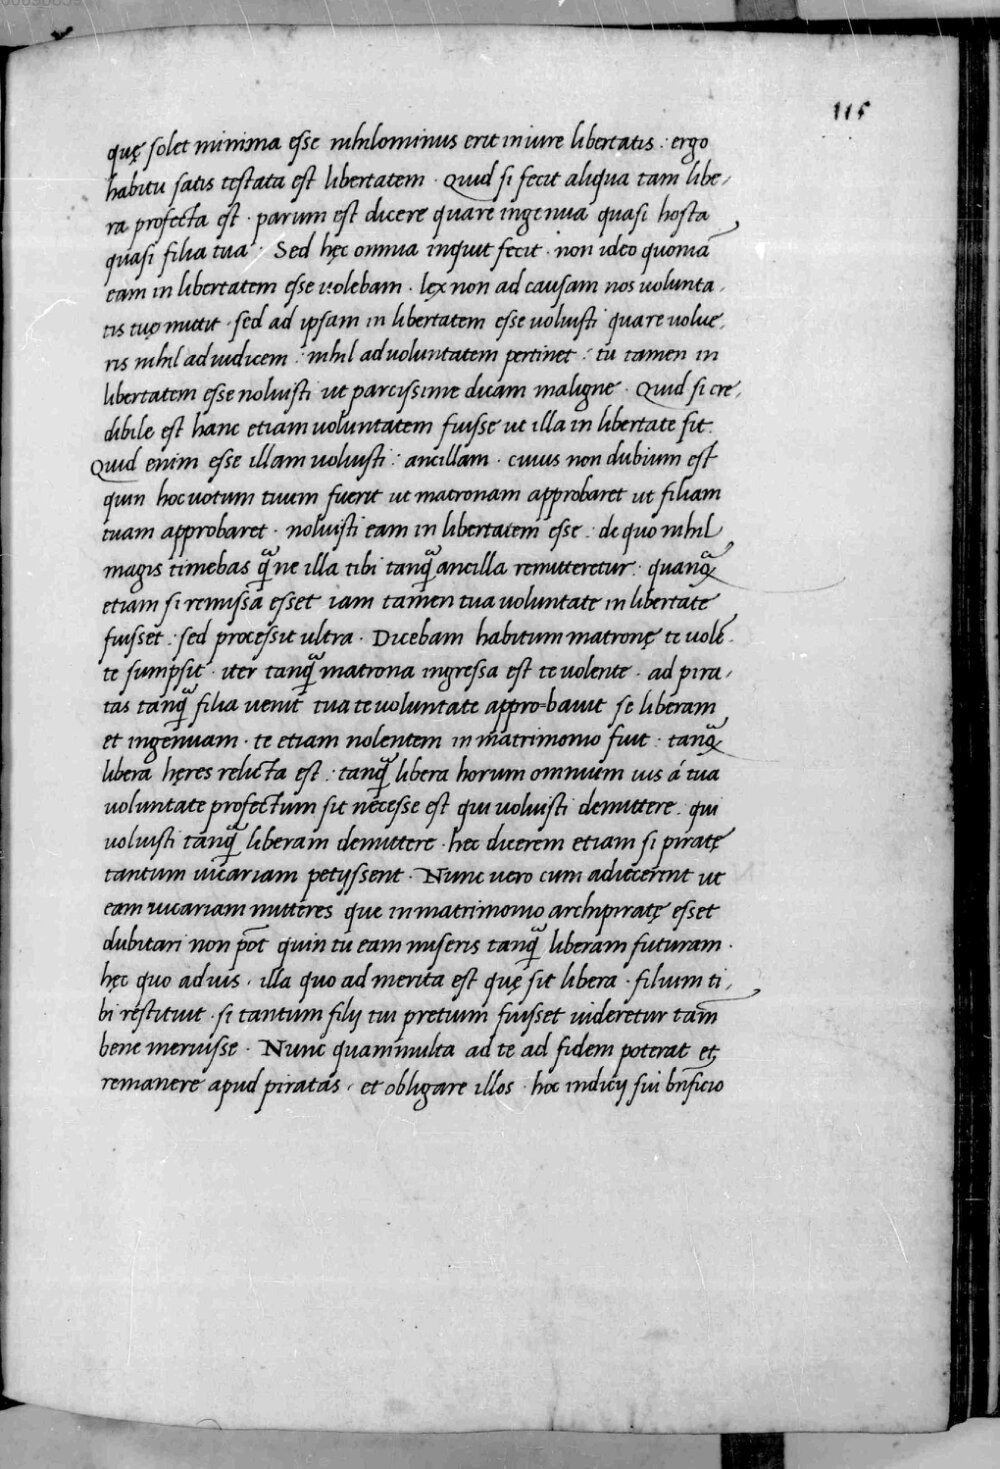 115
quę solet minima esse nihilominus erit in iure libertatis : ergo
habitu satis testata est libertatem · Quid si fecit aliqua tam libe,
ra profecta est · parum est dicere quare ingenua quasi hosta
quasi filia tua · Sed hęc omnia inquit fecit · non ideo quoniā
eam in libertatem esse uolebam · lex non ad causam nos uolunta,
tis tuę mittit · sed ad ipsam in libertatem esse uoluisti quare uolue,
ris nihil ad iudicem : nihil ad uoluntatem pertinet : tu tamen in
libertatem esse noluisti ut parcissime dicam maligne · Quid si cre,
dibile est hanc etiam uoluntatem fuisse ut illa in libertate sit.
Quid enim esse illam uoluisti : ancillam · cuius non dubium est
quin hoc uotum tuum fuerit ut matronam approbaret ut filiam
tuam approbaret · noluisti eam in libertatem esse : de quo nihil
magis timebas q̃ ne illa tibi tanq̃ ancilla remitteretur · quanq̃
etiam si remissa esset iam tamen tua uoluntate in libertate
fuisset : sed processit ultra · Dicebam habitum matronę te uolē,
te sumpsit · iter tanq̃ matrona ingressa est te uolente · ad pira,
tas tanq̃ filia uenit tua te uoluntate appro=bauit se liberam
et ingenuam · te etiam nolentem in matrimonio fuit : tanq̃
libera hęres relicta est : tanq̃ libera horum omnium ius á tua
uoluntate profectum sit necesse est qui uoluisti demittere . qui
uoluisti tanq̃ liberam demittere · hec dicerem etiam si piratę
tantum uicariam petijssent · Nunc uero cum adiecerint ut
eam uicariam mitteres que in matrimonio archipiratę esset
dubitari non pōt quin tu eam miseris tanq̃ liberam futuram ·
hęc quo ad uis · illa quo ad merita est quę sit libera · filium ti,
bi restituit · si tantum filij tui pretium fuisset uideretur tam̄
bene meruisse · Nunc quam multa ad te ad fidem poterat et
remanere apud piratas · et obligare illos · hoc indicij sui bn̄ficio